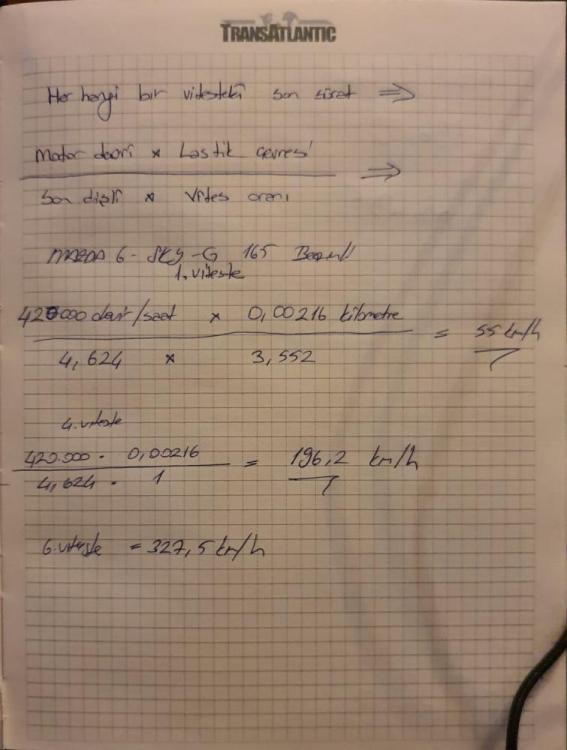 TRANSATLANTIC
Her hangi bir vitesteki son sürat ⇒
Motor devri × Lastik çevresi ⇒
Son dişli × Vites oranı
MAZDA 6 - SKY-G 165
1. viteste
420000 devir/saat × 0,00216 kilometre = 55 km/h
4,624 × 3,552
4. viteste
420.000 · 0,00216 = 196,2 km/h
4,624 · 1
6. viteste = 327,5 km/h